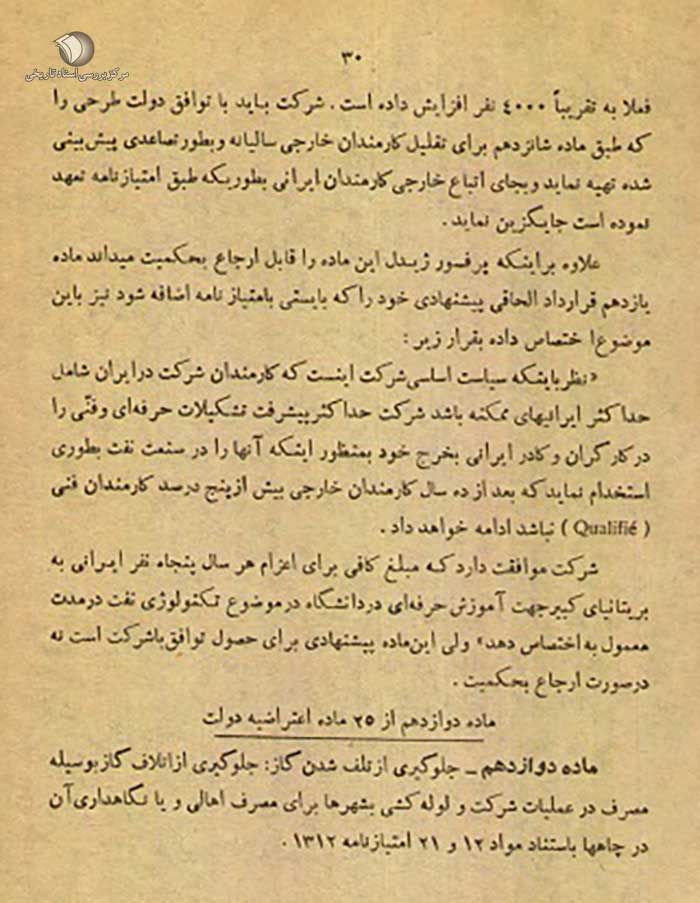 مرکز بررسی اسناد تاریخی
۳۰
فعلا به تقریباً ۴۰۰۰ نفر افزایش داده است . شرکت باید با توافق دولت طرحی را
که طبق ماده شانزدهم برای تقلیل کارمندان خارجی سالیانه و بطور تصاعدی پیش بینی
شده تهیه نماید و بجای اتباع خارجی کارمندان ایرانی بطوریکه طبق امتیازنامه تعهد
نموده است جایگزین نماید .
علاوه براینکه پرفسور ژیدل این ماده را قابل ارجاع بحکمیت میداند ماده
یازدهم قرارداد الحاقی پیشنهادی خود را که بایستی بامتیاز نامه اضافه شود نیز باین
موضوع اختصاص داده بقرار زیر :
« نظر باینکه سیاست اساسی شرکت اینست که کارمندان شرکت در ایران شامل
حداکثر ایرانیهای ممکنه باشد شرکت حداکثر پیشرفت تشکیلات حرفه‌ای وفنّی را
در کارگران و کادر ایرانی بخرج خود بمنظور اینکه آنها را در صنعت نفت بطوری
استخدام نماید که بعد از ده سال کارمندان خارجی بیش از پنج درصد کارمندان فنی
( Qualifié ) نباشد ادامه خواهد داد .
شرکت موافقت دارد که مبلغ کافی برای اعزام هر سال پنجاه نفر ایرانی به
بریتانیای کبیر جهت آموزش حرفه‌ای در دانشگاه در موضوع تکنولوژی نفت در مدت
معمول به اختصاص دهد» ولی این ماده پیشنهادی برای حصول توافق باشرکت است نه
درصورت ارجاع بحکمیت .
ماده دوازدهم از ۲۵ ماده اعتراضیه دولت
ماده دوازدهم ـ جلوگیری از تلف شدن گاز: جلوگیری از اتلاف گاز بوسیله
مصرف در عملیات شرکت و لوله کشی بشهرها برای مصرف اهالی و یا نگاهداری آن
در چاهها باستناد مواد ۱۲ و ۲۱ امتیازنامه ۱۳۱۲ .